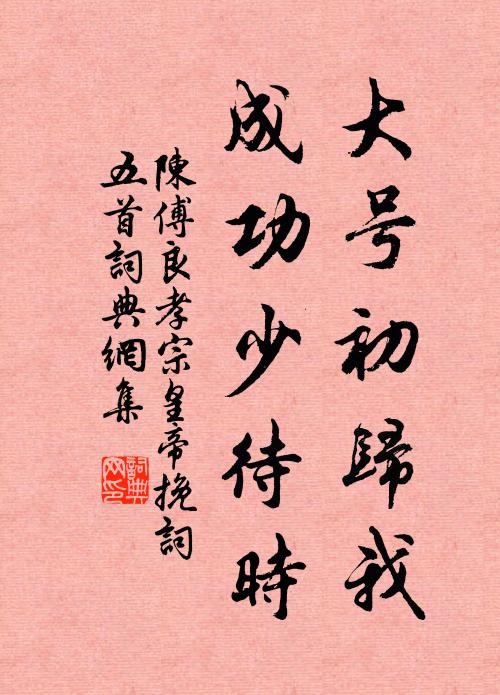 大号初歸我
成功少待時
陳傅良孝宗皇帝挽詞
五首詞典網集
詞典
网印